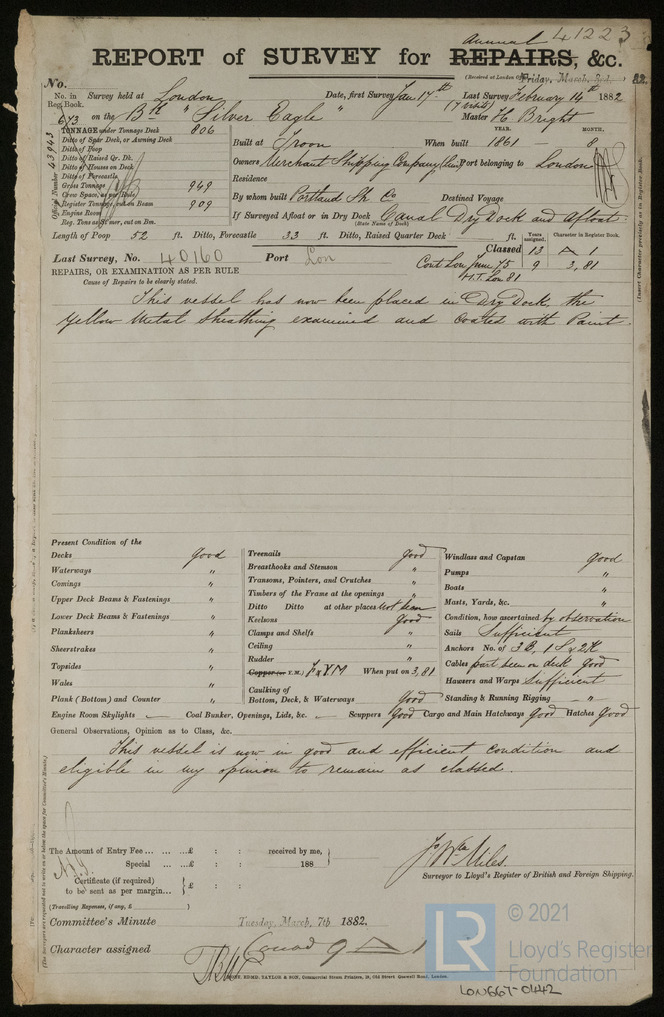 Annual 41223
REPORT of SURVEY for REPAIRS, &c.
(Received at London Office Friday, March, 3rd, 82.
No.
No. in Reg. Book. Survey held at London Date, first Survey Jan 17th Last Survey February 14th 1882
(7 visits)
673 on the Bk "Silver Eagle" Master H. Bright
TONNAGE under Tonnage Deck 806
Ditto of Spar Deck, or Awning Deck
Ditto of Poop
Ditto of Raised Qr. Dk.
Ditto of Houses on Deck
Ditto of Forecastle
Gross Tonnage 949
Crew Space, as per Rule
Register Tonnage, cut on Beam 909
Engine Room
Reg. Tons as Str, cut on Bm.
Official Number 43943
YEAR. MONTH.
Built at Troon When built 1861 8
Owners Merchant Shipping Company (Lim) Port belonging to London
Residence
By whom built Portland Sh. Co Destined Voyage
If Surveyed Afloat or in Dry Dock Canal Dry Dock and Afloat.
(State Name of Dock)
Length of Poop 52 ft. Ditto, Forecastle 33 ft. Ditto, Raised Quarter Deck ft.
Years assigned. Character in Register Book.
Last Survey, No. 40160 Port Lon Classed 13 A 1
Contd Lon June 75 9 3,81
H.T. Lon 81
REPAIRS, OR EXAMINATION AS PER RULE
Cause of Repairs to be clearly stated.
This vessel has now been placed in Dry Dock, the
Yellow Metal Sheathing examined and coated with Paint.
Present Condition of the
Decks Good
Waterways "
Comings "
Upper Deck Beams & Fastenings "
Lower Deck Beams & Fastenings "
Planksheers "
Sheerstrakes "
Topsides "
Wales "
Plank (Bottom) and Counter "
Treenails Good
Breasthooks and Stemson "
Transoms, Pointers, and Crutches "
Timbers of the Frame at the openings "
Ditto Ditto at other places Not seen
Keelsons Good
Clamps and Shelfs "
Ceiling "
Rudder "
Copper (or Y.M.) F & YM When put on 3,81
Caulking of
Bottom, Deck, & Waterways Good
Windlass and Capstan Good
Pumps "
Boats "
Masts, Yards, &c. "
Condition, how ascertained by observation
Sails Sufficient
Anchors No. of 3 B, 1 S & 2 K
Cables part seen on deck Good
Hawsers and Warps Sufficient
Standing & Running Rigging "
Engine Room Skylights Coal Bunker, Openings, Lids, &c. Scuppers Good Cargo and Main Hatchways Good Hatches Good
General Observations, Opinion as to Class, &c.
This vessel is now in good and efficient condition and
eligible in my opinion to remain as classed.
The Amount of Entry Fee ... £ : : received by me,
Special ... £ : : 188
Certificate (if required) to be sent as per margin... £ : :
(Travelling Expenses, if any, £ )
Miles.
Surveyor to Lloyd's Register of British and Foreign Shipping.
Committee's Minute Tuesday, March, 7th 1882.
Character assigned Contd 9 A 1
© 2021
LR Lloyd's Register
Foundation
LON667-0442